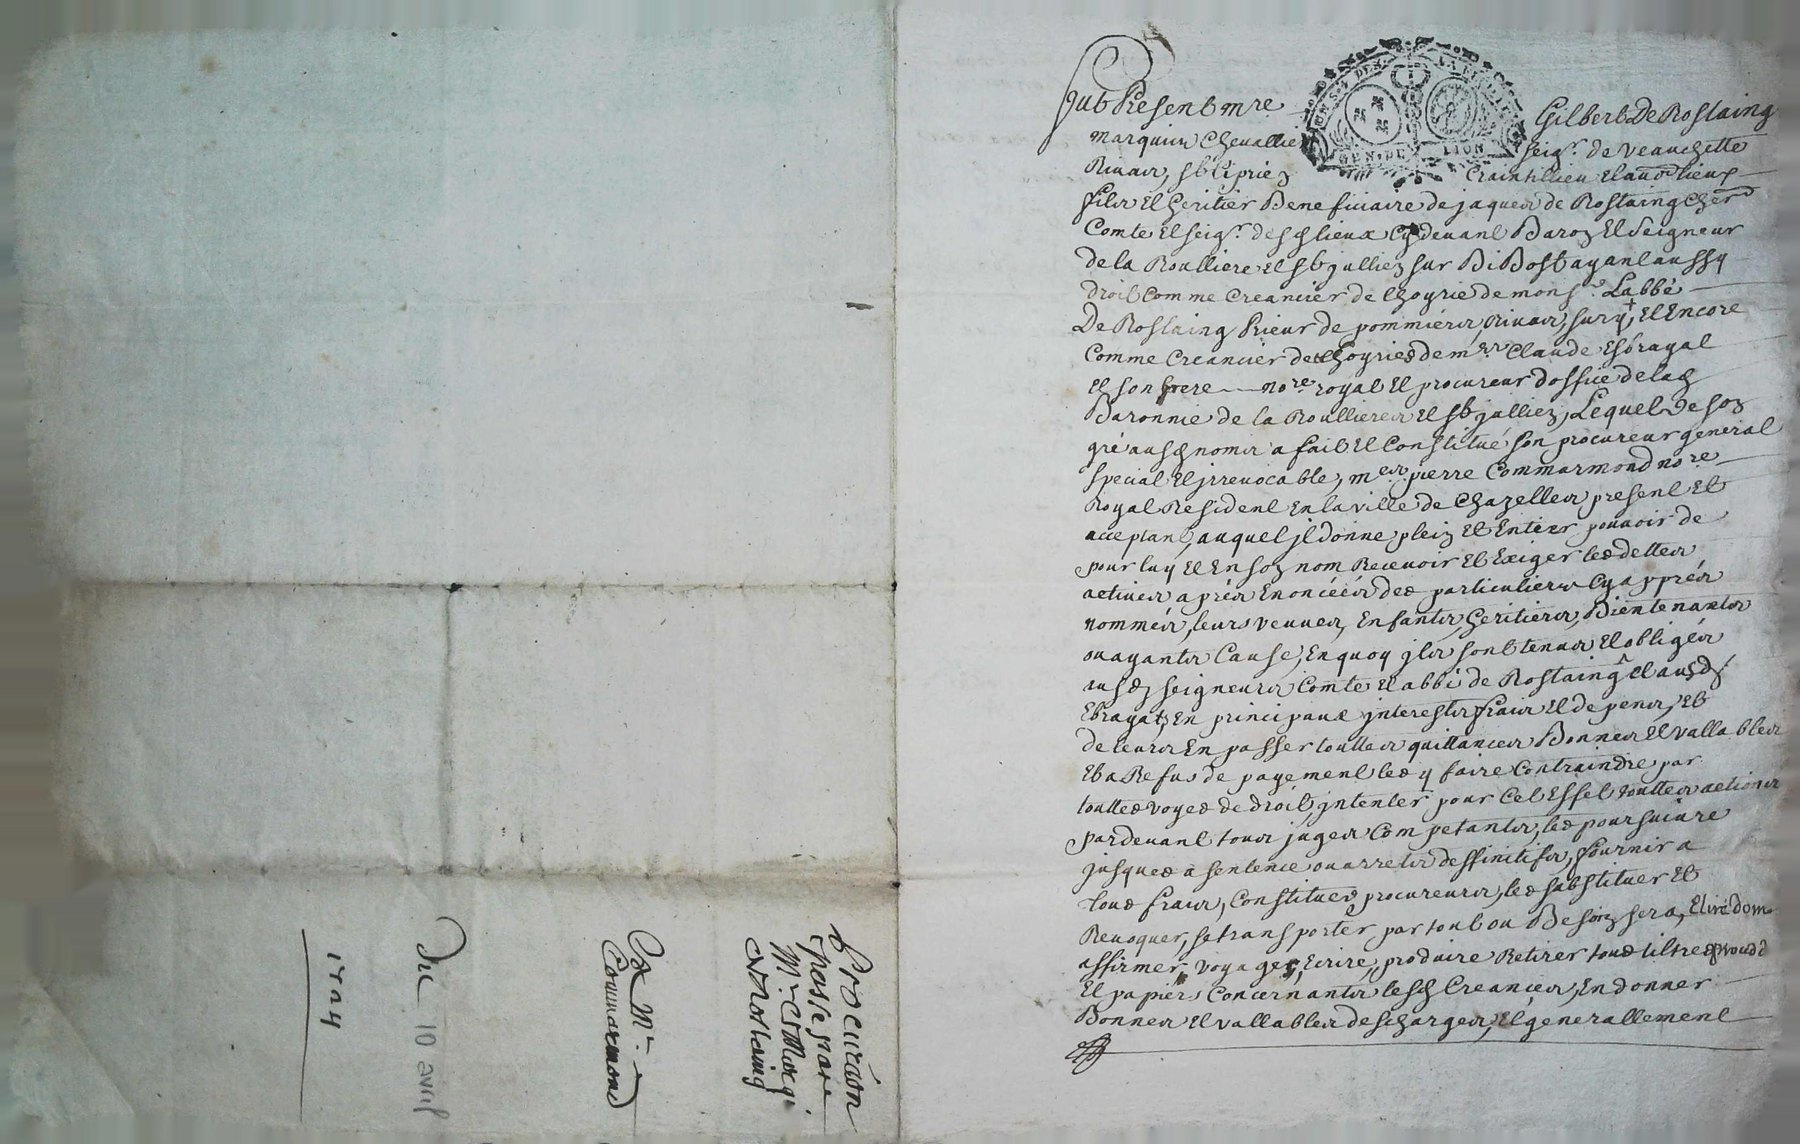 fut Present mre Gilbert De Rostaing
marquis Chevallier seigr. de veauchette
Rivas, st Ciprien Craintillieu et autres lieux
fils et heritier Beneficiaire de jaques de Rostaing Cher
Comte et seigr. desd lieux Cy devant Baron et Seigneur
de la Roulliere et st jullien sur BiBost ayant aussy
droit Comme Creancier de lhoyrie de monsr. Labbé
De Rostaing Prieur de pommiers, Rivas, sury, et Encore
Comme Creancier de lhoyrie de mre Claude
et son frere nore. royal et procureur doffice de lad
Baronnie de la Roulliere et st jullien, Lequel de son
gré ausd noms a fait et Constitué son procureur general
special et jrrevocable, me pierre Commarmond nore
Royal Resident En la ville de Chazelles present et
acceptant, auquel jl donne plein et Entier pouvoir de
pour luy et En son nom Recevoir et Exiger les dettes
actives apres Enoncées des particuliers Cy appres
nommés, leurs veuves, Enfants, heritiers, Bientenants
ou ayants Cause, En quoy jls sont tenus et obligés
ausd seigneurs Comte et abbé de Rostaing et ausd
En principaux jnterests frais et depens, et
de leurs En passer touttes quittances Bonnes et vallables
et a Refus de payement les y faire Contraindre par
touttes voyes de droit, jntenter pour Cet Effet touttes actions
pardevant tous juges Competants, les poursuivre
jusques a sentence ou arrets deffinitifs, fournir a
tous frais, Constituer procureurs, les substituer et
Revoquer, se transporter par tout ou Besoin sera, Elire dom.
affirmer voyages, Ecrire, produire Retirer tous tiltres
et papiers Concernants lesd Creances, En donner
Bonnes et vallables descharges, et generallement
Procuration
passé par
Mr. le Marq.
de Rostaing
a Mr.
Commarmond
Du 10 avril
1724
GEN. DE LION